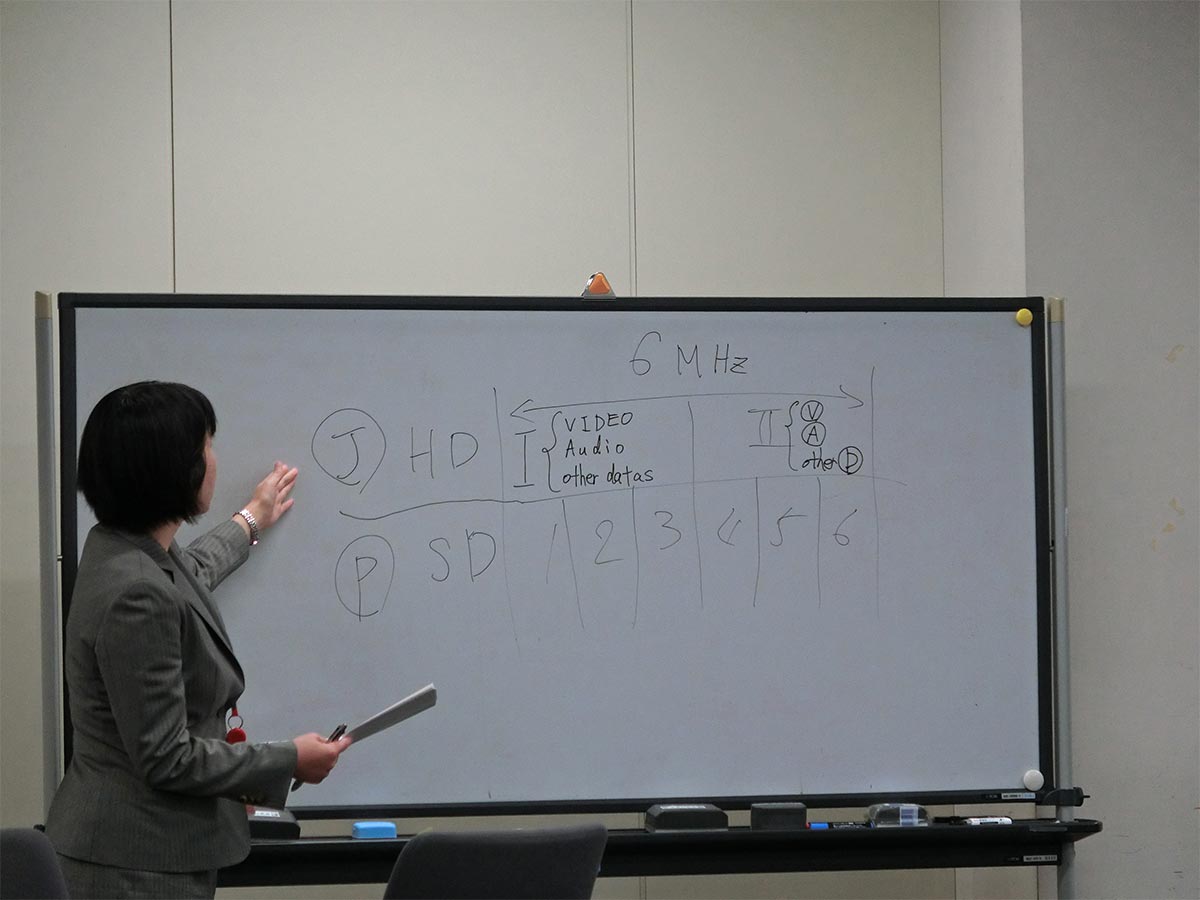 6 MHz
J HD I { VIDEO II { V
Audio A
other datas other D
P SD 1 2 3 4 5 6